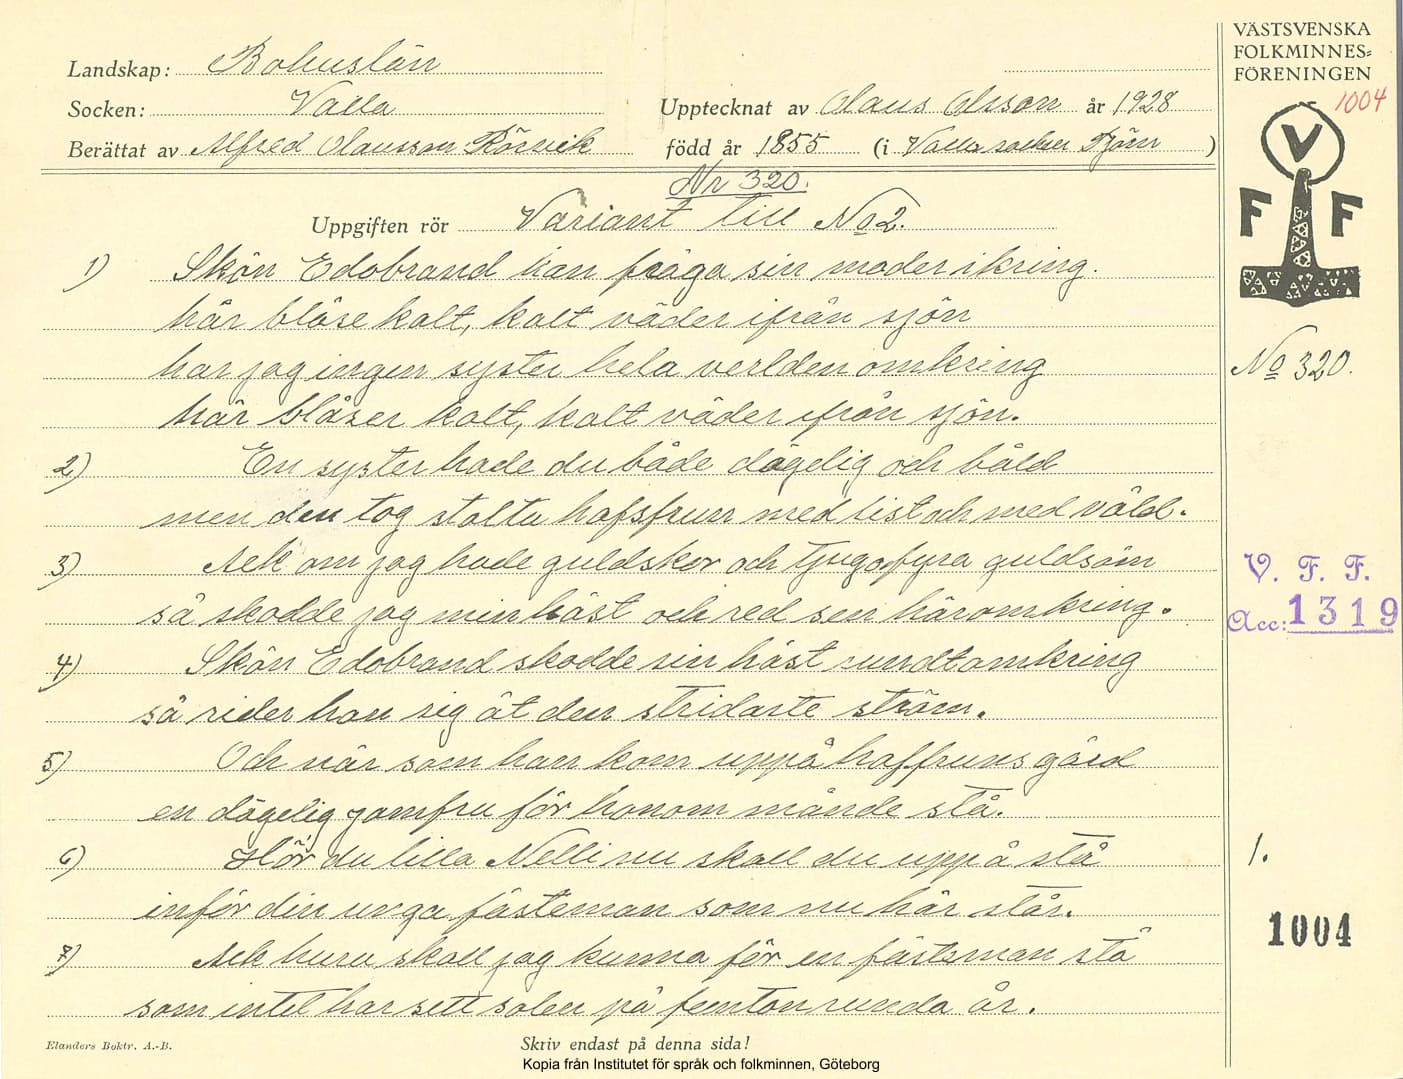 VÄSTSVENSKA
FOLKMINNES=
FÖRENINGEN
1004
V
F F
Landskap: Bohuslän
Socken: Valla
Upptecknat av Olaus Olsson år 1928
Berättat av Alfred Olausson Rörvik
född år 1855 (i Valla socken Tjörn)
Nr 320.
Uppgiften rör Variant till No 2.
1) Skön Edobrand han fråga sin moder ikring.
här blåse kalt, kalt väder ifrån sjön
har jag ingen syster hela verlden omkring
här blåser kalt, kalt väder ifrån sjön.
2) En syster hade du både dägelig och båld
men den tog stolta hafsfrun med list och med våld.
3) Ack om jag hade guldskor och tjugofyra guldsöm
så skodde jag min häst och red sen här omkring.
4) Skön Edobrand skodde sin häst rundtomkring
så rider han sig åt den stridaste ström.
5) Och när som han kom uppå haffruns gård
en dägelig jomfru för honom månde stå.
6) Hör du lilla Nelli nu skall du uppå stå
inför din unga fästeman som nu här står.
7) Ack huru skall jag kunna för en fästsman stå
som intet har sett solen på femton runda år.
No 320.
V. F. F.
Acc: 1319
1.
1004
Elanders Boktr. A.-B.
Skriv endast på denna sida!
Kopia från Institutet för språk och folkminnen, Göteborg